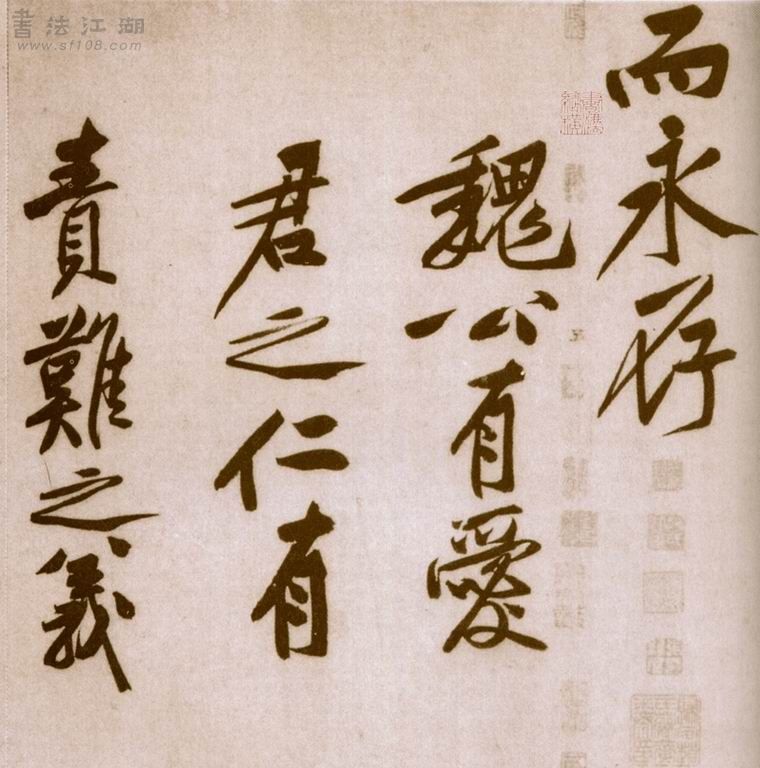 而永存
魏公有愛
君之仁有
責難之義
書法江湖
www.sf108.com